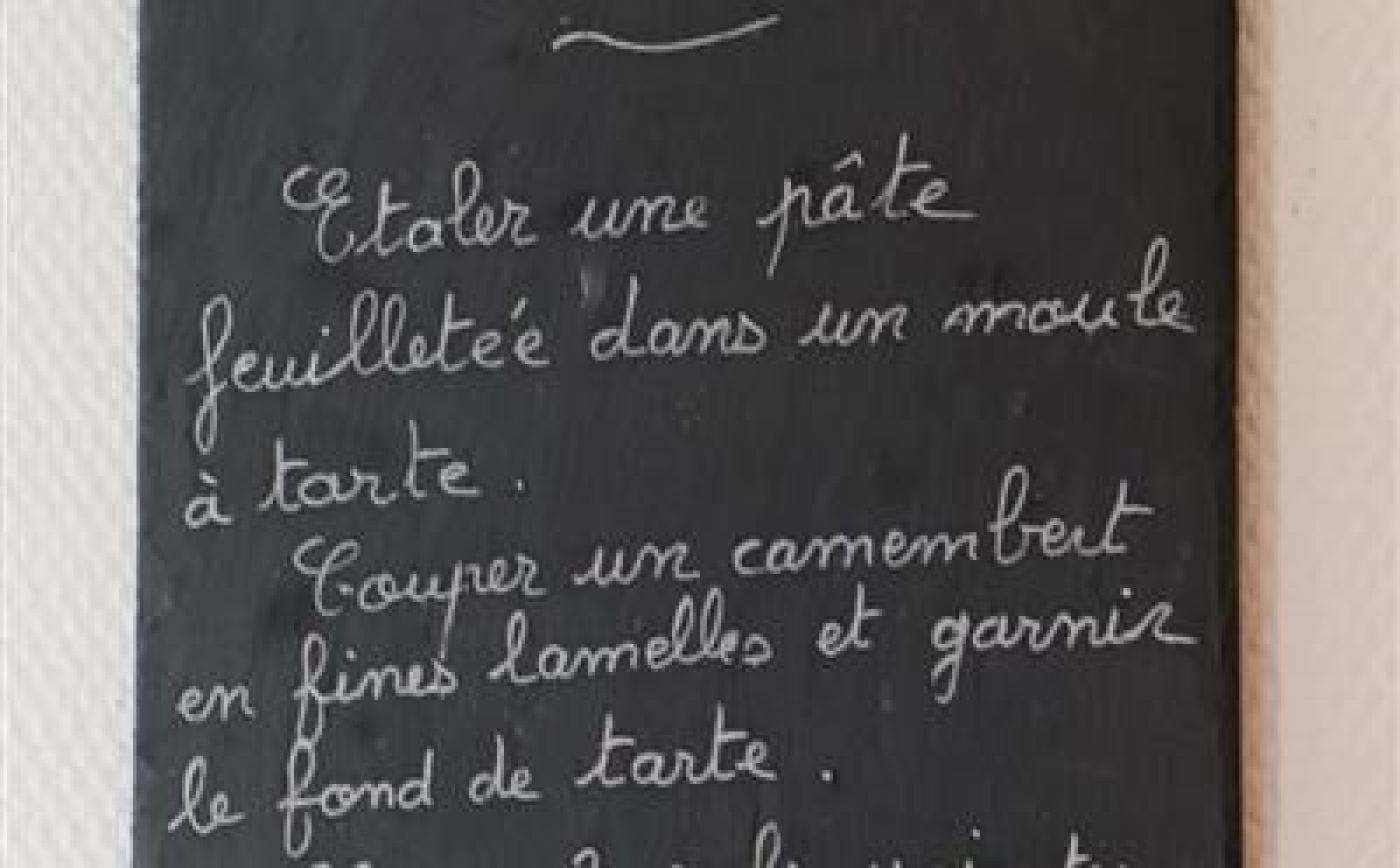 Etaler une pâte
feuilletée dans un moule
à tarte.
Couper un camembert
en fines lamelles et garnir
le fond de tarte.